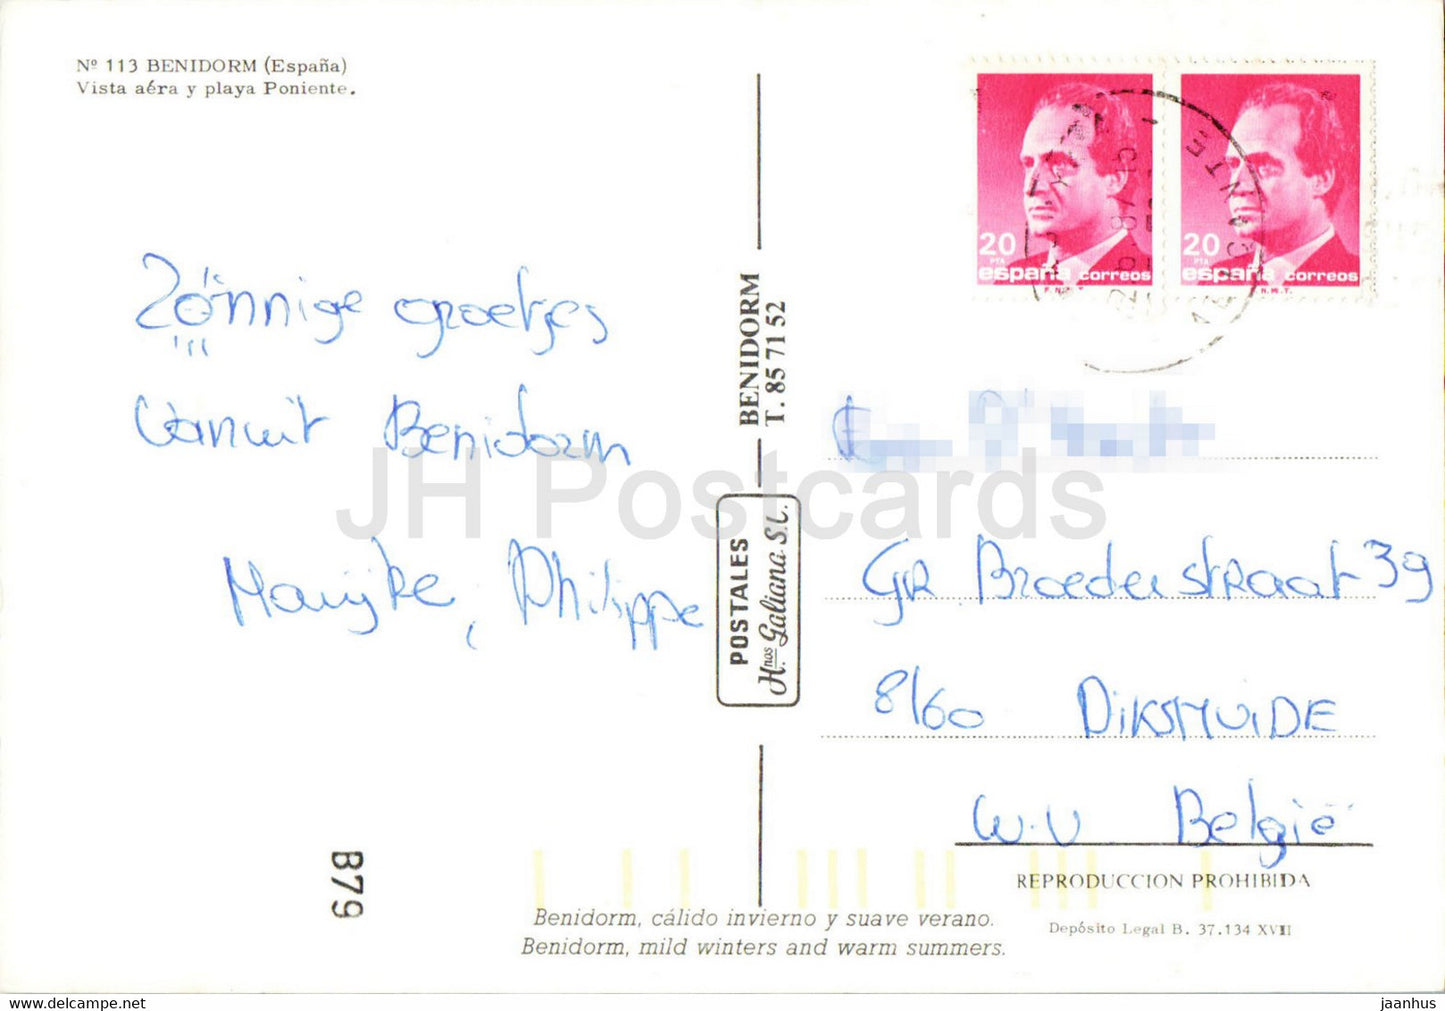 Nº 113 BENIDORM (España)
Vista aéra y playa Poniente.
Zonnige groetjes
Vanuit Benidorm
Marijke, Philippe
BENIDORM
T. 85 71 52
POSTALES
Hnos Galiana S.L.
20
PTA
españa correos
20
PTA
españa correos
N.M.T.
GR Broederstraat 39
8160 DIKSMUIDE
W.V België
JH Postcards
REPRODUCCION PROHIBIDA
Depósito Legal B. 37.134 XVII
B79
Benidorm, cálido invierno y suave verano.
Benidorm, mild winters and warm summers.
jaanhus